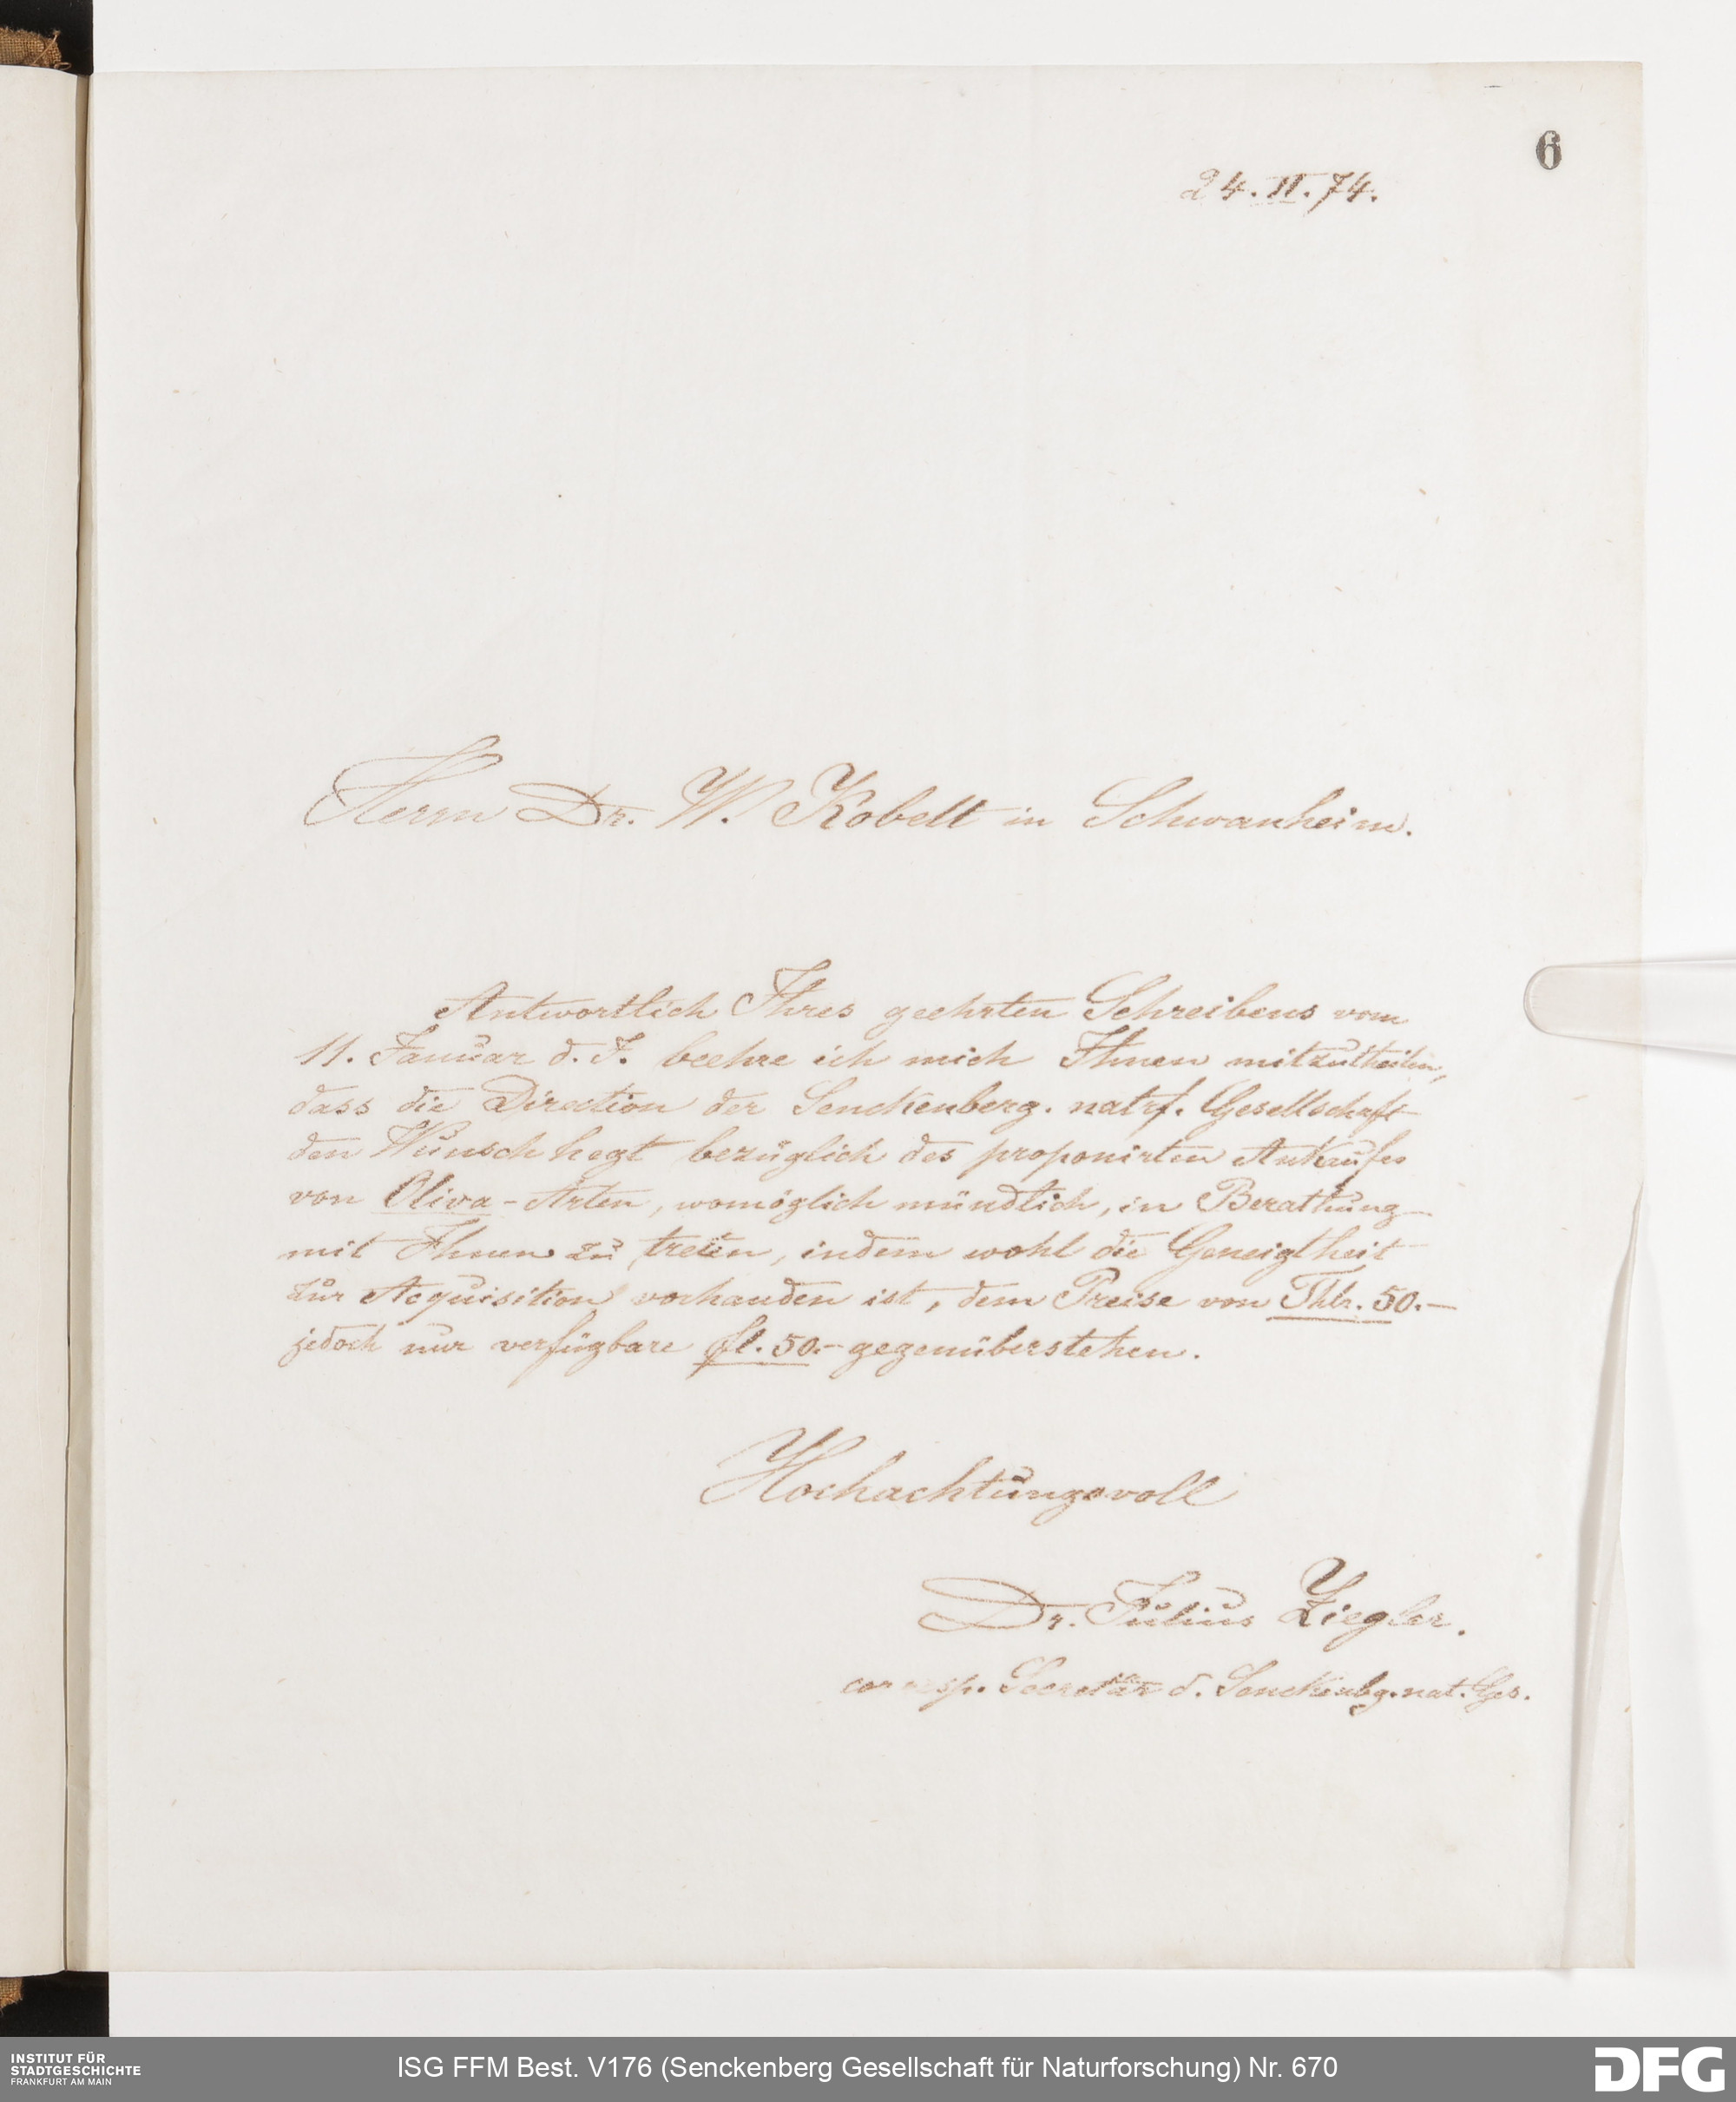 6
24. II. 74.
Herrn Dr. W. Kobelt in Schwanheim.
Antwortlich Ihres geehrten Schreibens vom
11. Januar d. J. beehre ich mich Ihnen mitzutheilen,
dass die Direction der Senckenberg. natrf. Gesellschaft
den Wunsch hegt bezüglich des proponirten Ankaufes
von Oliva-Arten, womöglich mündlich, in Berathung
mit Ihnen zu treten, indem wohl die Geneigtheit
zur Acquisition vorhanden ist, dem Preise von Thlr. 50.—
jedoch nur verfügbare fl. 50.— gegenüberstehen.
Hochachtungsvoll
Dr. Julius Ziegler.
corresp. Secretär d. Senckenbg. nat. Ges.
INSTITUT FÜR
STADTGESCHICHTE
FRANKFURT AM MAIN
ISG FFM Best. V176 (Senckenberg Gesellschaft für Naturforschung) Nr. 670
DFG